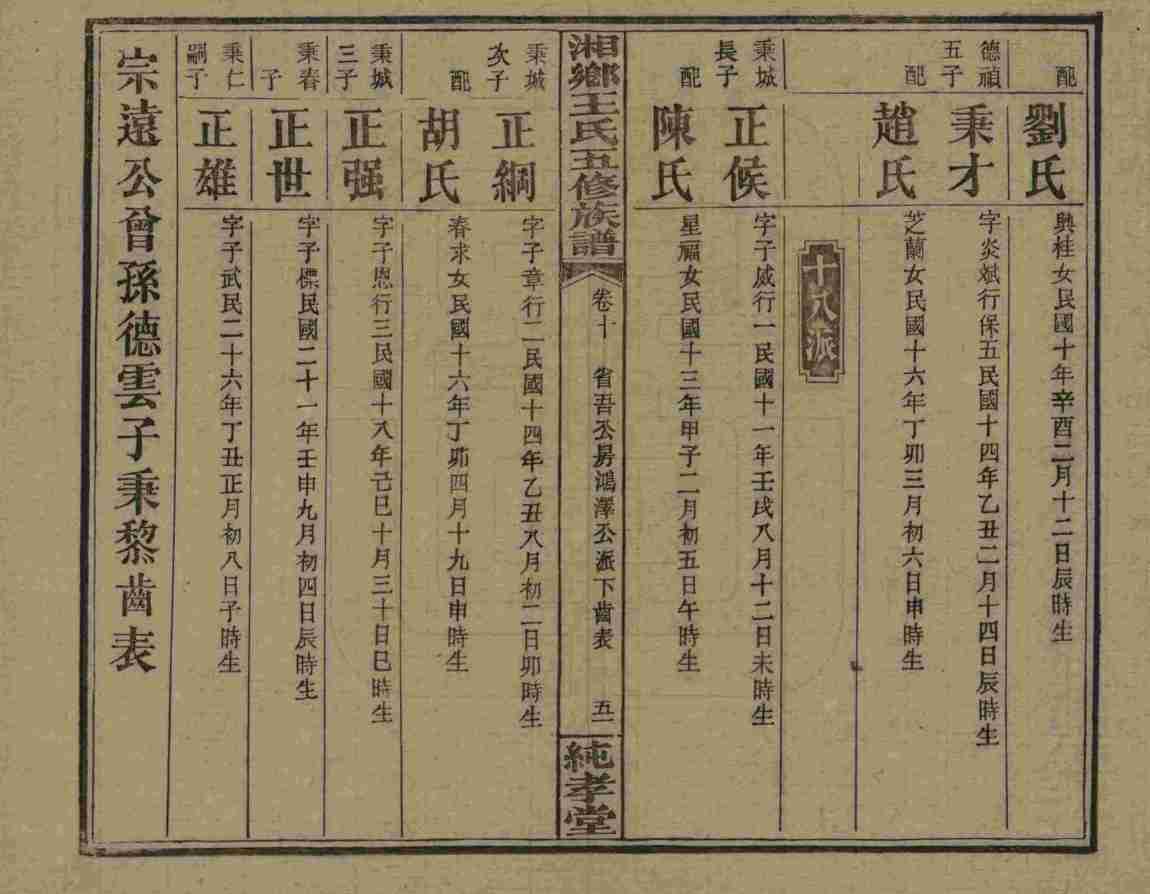 配
劉氏
興桂女民國十年辛酉二月十二日辰時生
德禎
五子
秉才
字炎斌行保五民國十四年乙丑二月十四日辰時生
配
趙氏
芝蘭女民國十六年丁卯三月初六日申時生
十八派
秉城
長子
正候
字子威行一民國十一年壬戌八月十二日未時生
配
陳氏
星福女民國十三年甲子二月初五日午時生
湘鄉王氏五修族譜
卷十
省吾公房鴻澤公派下齒表
五一
純孝堂
秉城
次子
正綱
字子章行二民國十四年乙丑八月初二日卯時生
配
胡氏
春求女民國十六年丁卯四月十九日申時生
秉城
三子
正强
字子恩行三民國十八年己巳十月三十日巳時生
秉春
子
正世
字子傑民國二十一年壬申九月初四日辰時生
秉仁
嗣子
正雄
字子武民二十六年丁丑正月初八日子時生
宗遠公曾孫德雲子秉黎齒表